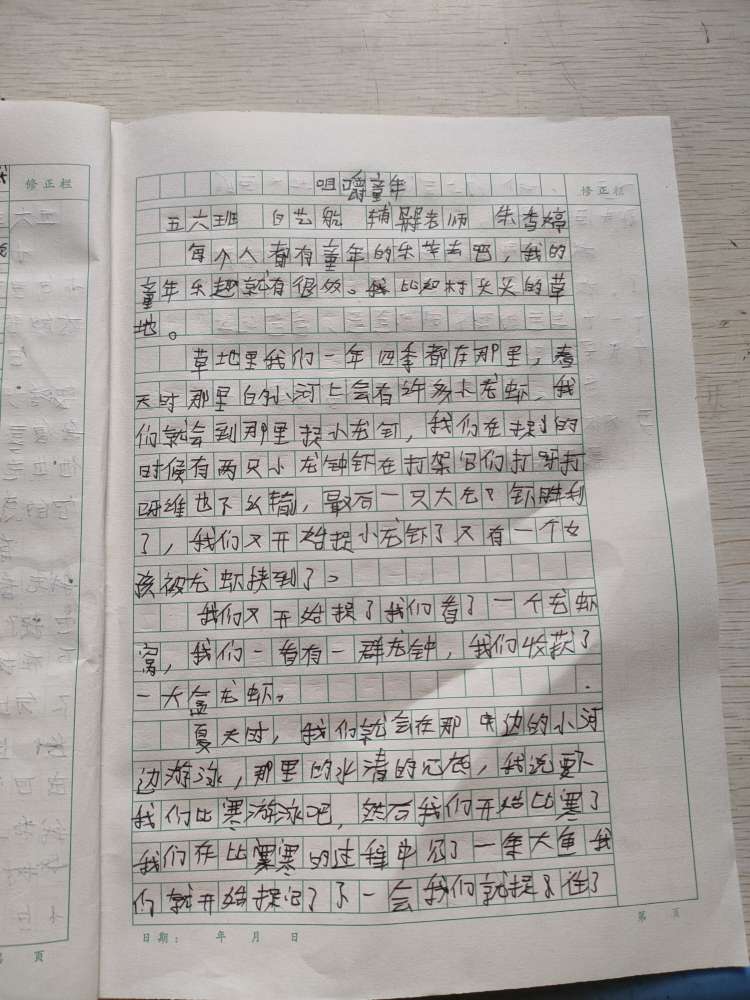 修正栏
咀嚼童年
修正栏
五六班 白艺船 辅导老师 朱秀婷
每个人都有童年的乐 吧，我的
童年乐趣就有很多。我比如村头的草
地。
草地里我们一年四季都在那里，春
天时那里白的小河上会有许多小龙虾，我
们就会到那里捉小龙虾，我们在捉的
时候有两只小龙虾在打架它们打呀打
呀谁也不认输，最后一只大龙虾胜利
了，我们又开始捉小龙虾了又有一个女
孩被龙虾挟到了。
我们又开始捉了我们看了一个龙虾
窝，我们一看有一群龙虾，我们收获了
一大盆龙虾。
夏天时，我们就会在那 边的小河
边游泳，那里的水清的见底，我说要不
我们比寒游泳吧，然后我们开始比寒了
我们在比寒的过程中见了一条大鱼我
们就开始捉 了不一会我们就捉 住了
日期： 年 月 日
第 页
页